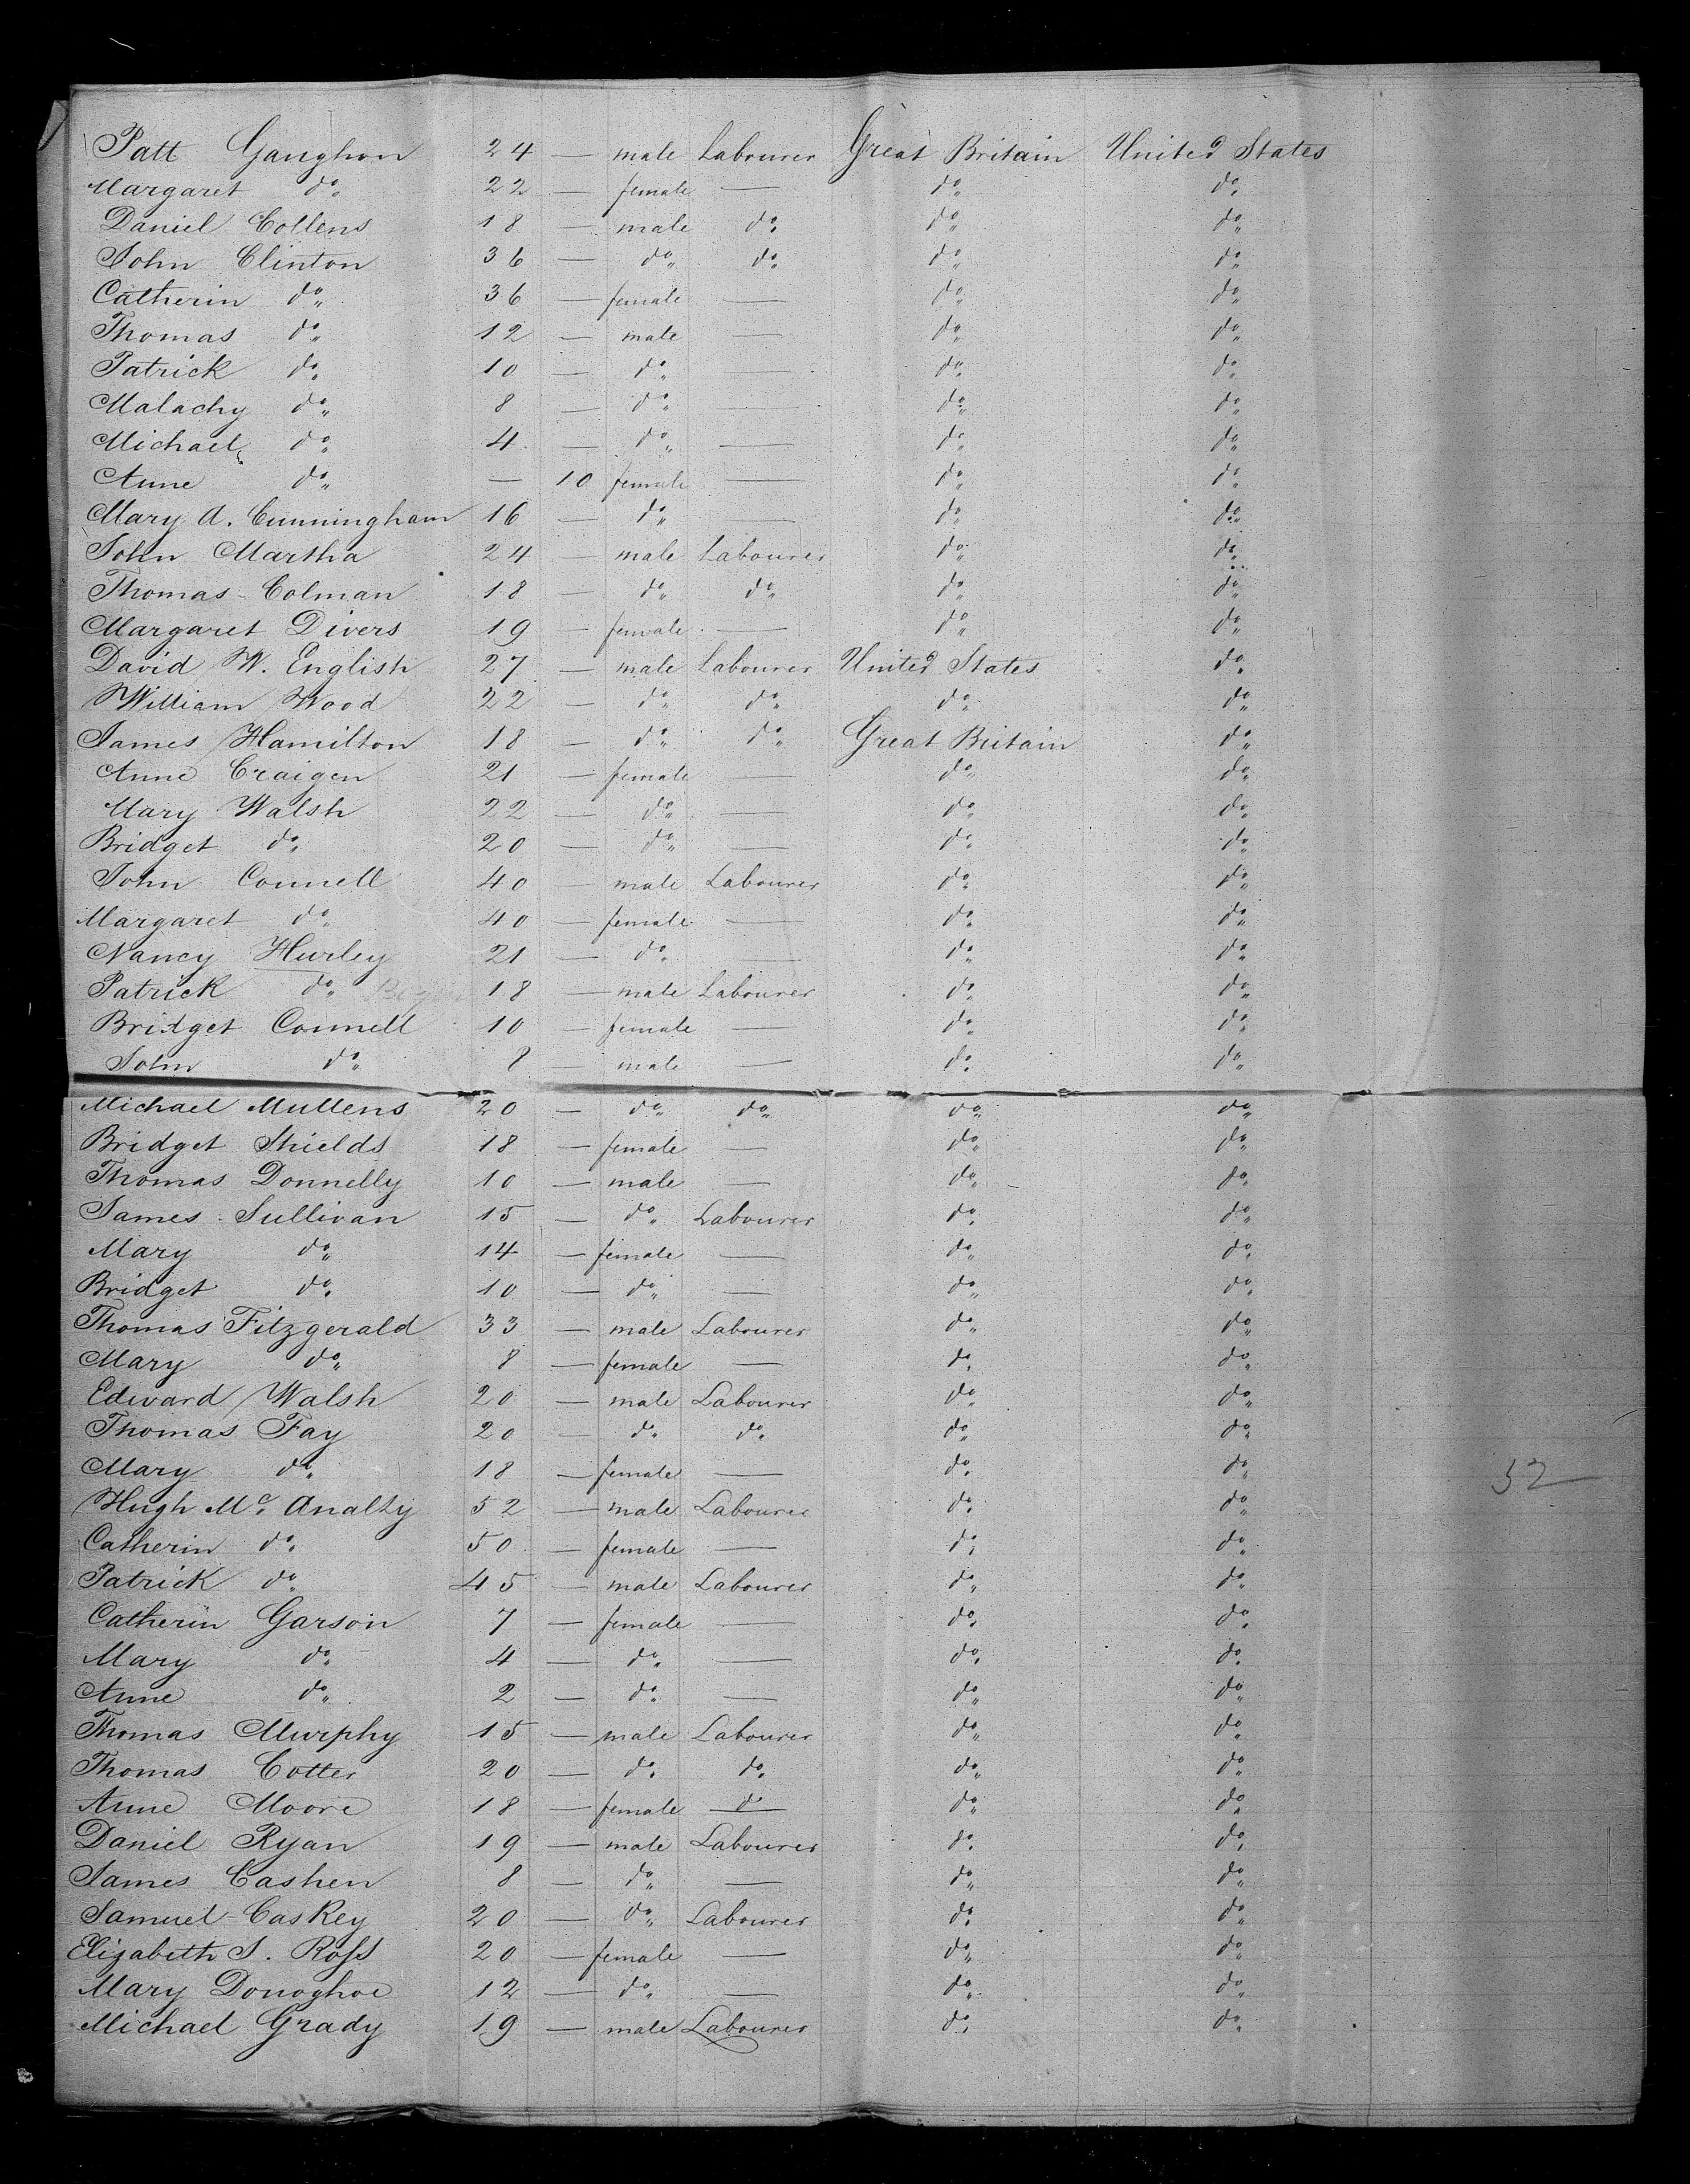 Patt Ganghon 24 — male Labourer Great Britain United States
Margaret do 22 — female — do do
Daniel Collens 18 — male do do do
John Clinton 36 — do do do do
Catherin do 36 — female — do do
Thomas do 12 — male — do do
Patrick do 10 — do — do do
Malachy do 8 — do — do do
Michael do 4 — do — do do
Anne do — 10 female — do do
Mary A. Cunningham 16 — do — do do
John Martha 24 — male Labourer do do
Thomas Colman 18 — do do do do
Margaret Divers 19 — female — do do
David W. English 27 — male Labourer United States do
William Wood 22 — do do do do
James Hamilton 18 — do do Great Britain do
Anne Craigen 21 — female — do do
Mary Walsh 22 — do — do do
Bridget do 20 — do — do do
John Connell 40 — male Labourer do do
Margaret do 40 — female — do do
Nancy Hurley 21 — do — do do
Patrick do 18 — male Labourer do do
Bridget Connell 10 — female — do do
John do 8 — male — do do
Michael Mullens 20 — do do do do
Bridget Shields 18 — female — do do
Thomas Donnelly 10 — male — do do
James Sullivan 15 — do Labourer do do
Mary do 14 — female — do do
Bridget do 10 — do — do do
Thomas Fitzgerald 33 — male Labourer do do
Mary do 8 — female — do do
Edward Walsh 20 — male Labourer do do
Thomas Fay 20 — do do do do
Mary do 18 — female — do do 52
Hugh Mc Analty 52 — male Labourer do do
Catherin do 50 — female — do do
Patrick do 45 — male Labourer do do
Catherin Garson 7 — female — do do
Mary do 4 — do — do do
Anne do 2 — do — do do
Thomas Murphy 15 — male Labourer do do
Thomas Cotter 20 — do do do do
Anne Moore 18 — female do do do
Daniel Ryan 19 — male Labourer do do
James Cashen 8 — do — do do
Samuel Caskey 20 — do Labourer do do
Elizabeth S. Ross 20 — female — do do
Mary Donoghoe 12 — do — do do
Michael Grady 19 — male Labourer do do